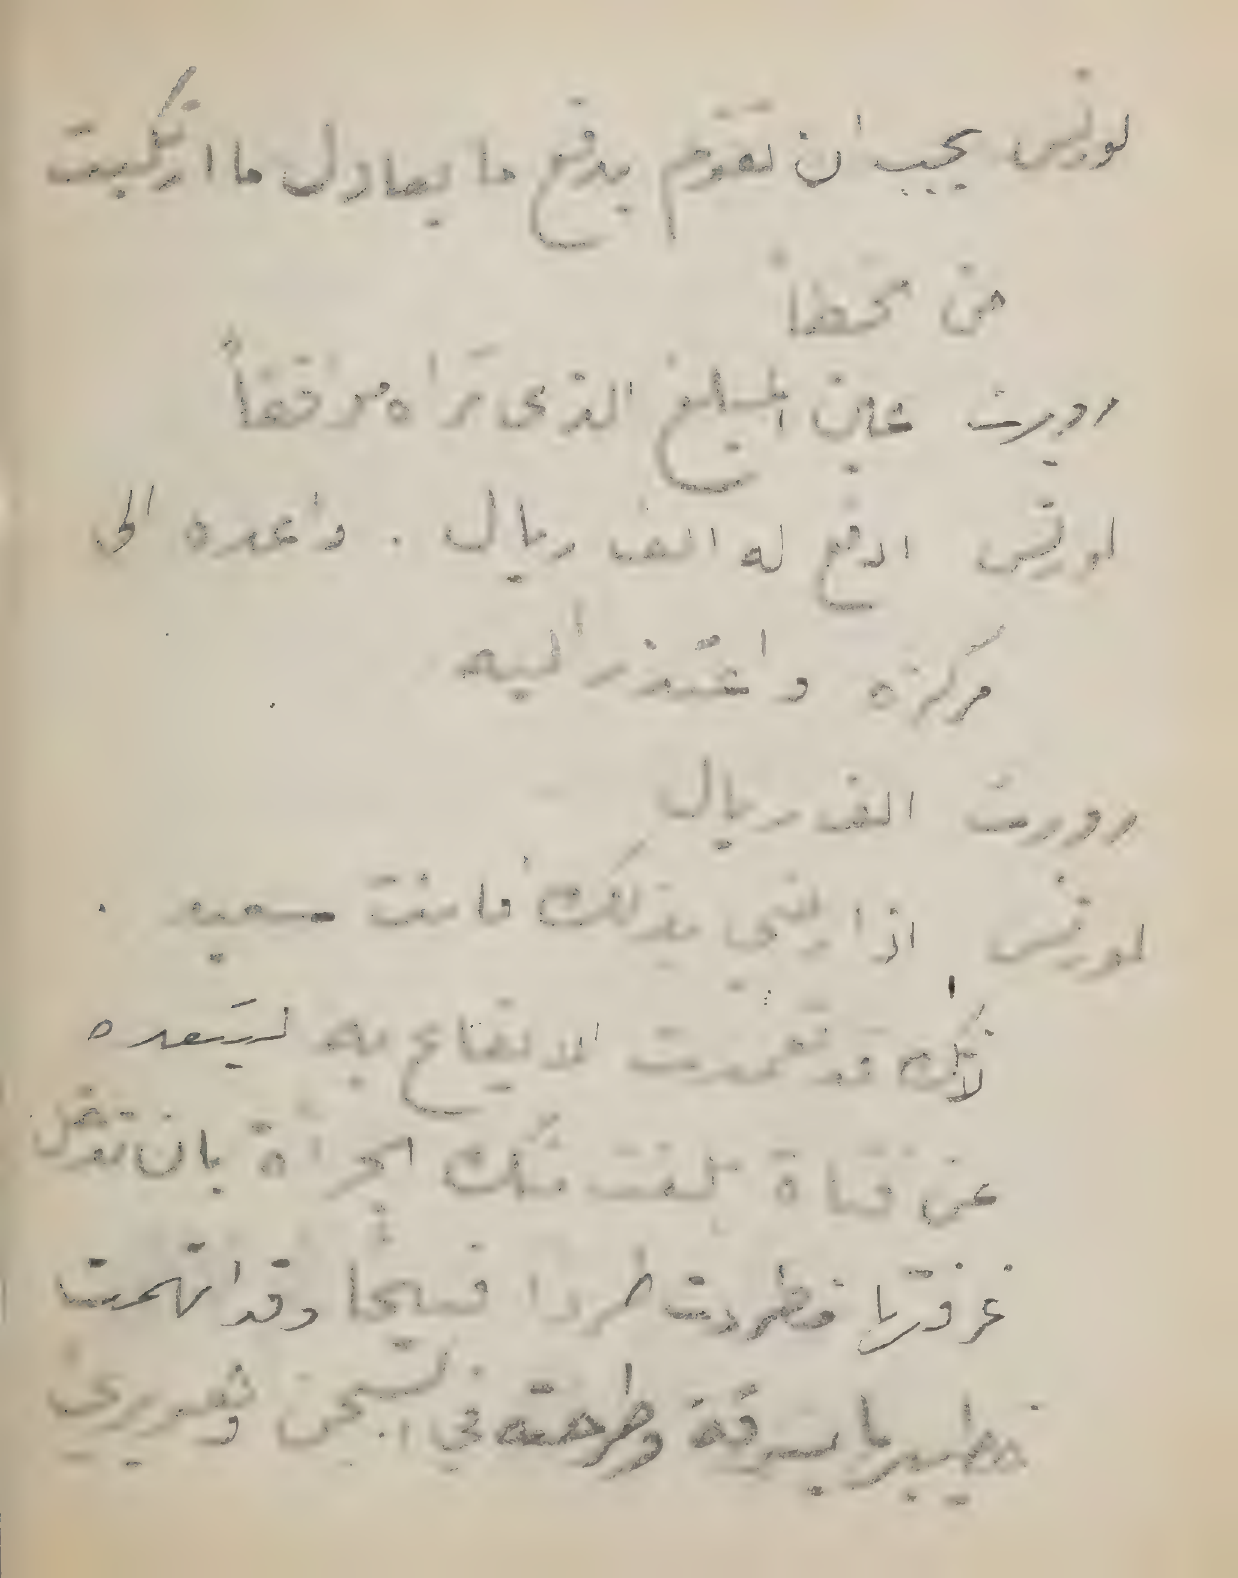 لورنس يجب ان تقوم بدفع ما يعادل ما ارتكبت
من خطأ
روبرت عين المبلغ الذى تراه موفقاً
لورنس ادفع له الف ريال . واعده الى
مركزه واعتذر اليه
روبرت الف ريال
لورنس اذا رضي بذلك فانت سعيد .
لانك قد تعمدت الايقاع به ليبعده
عن فتاة بلغت منك الجرأة بان تدخل
غرفتها فطردت طردا قبيحا وقد اتهمت
خطيبها بسرقة وطرحته في السجن